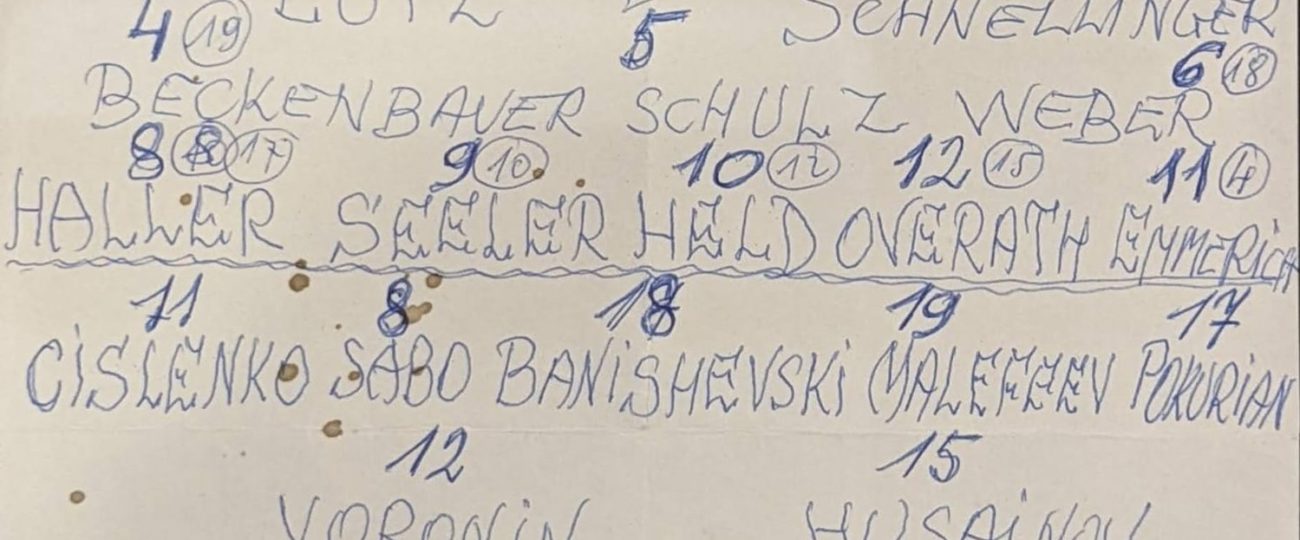 4 (19) LUTZ 5 SCHNELLINGER
6 (18)
BECKENBAUER SCHULZ WEBER
8 (17) 9 (10) 10 (12) 12 (15) 11 (4)
HALLER SEELER HELD OVERATH EMMERICH
11 8 18 19 17
CISLENKO SABO BANISHEVSKI MALEFEEV POKURIAN
12 15
VORONIN HUSAINOV